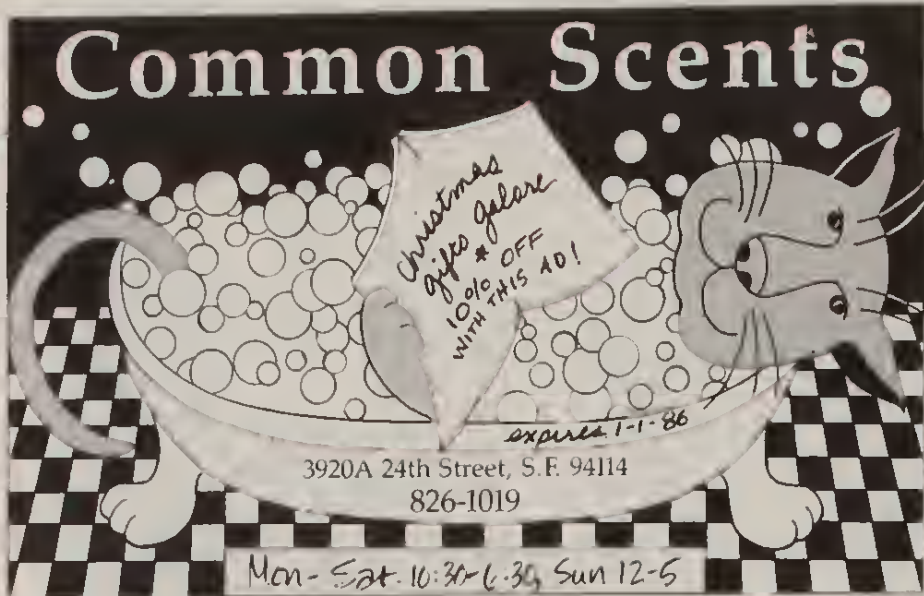 Common Scents
Christmas
gifts galore
*
10% OFF
WITH THIS AD!
expires 1-1-86
3920A 24th Street, S.F. 94114
826-1019
Mon-Sat 10:30-6:30, Sun 12-5